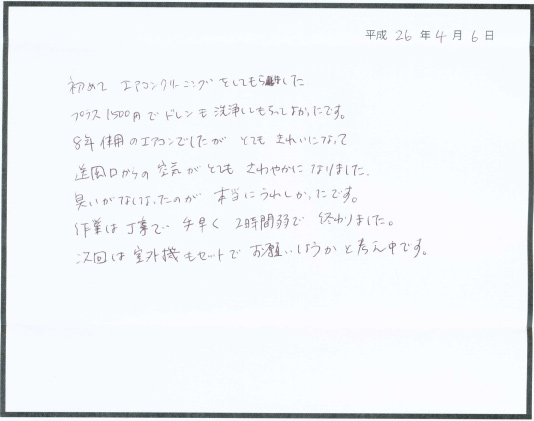 平成 26 年 4 月 6 日
初めて エアコンクリーニングをしてもらいました
プラス1500円でドレンも洗浄してもらってよかったです。
8年使用のエアコンでしたが とても きれいになって
送風口からの 空気が とても さわやかに なりました。
臭いがなくなったのが 本当にうれしかったです。
作業は丁寧で 手早く 2時間弱で 終わりました。
次回は室外機もセットで お願いしようかと考え中です。